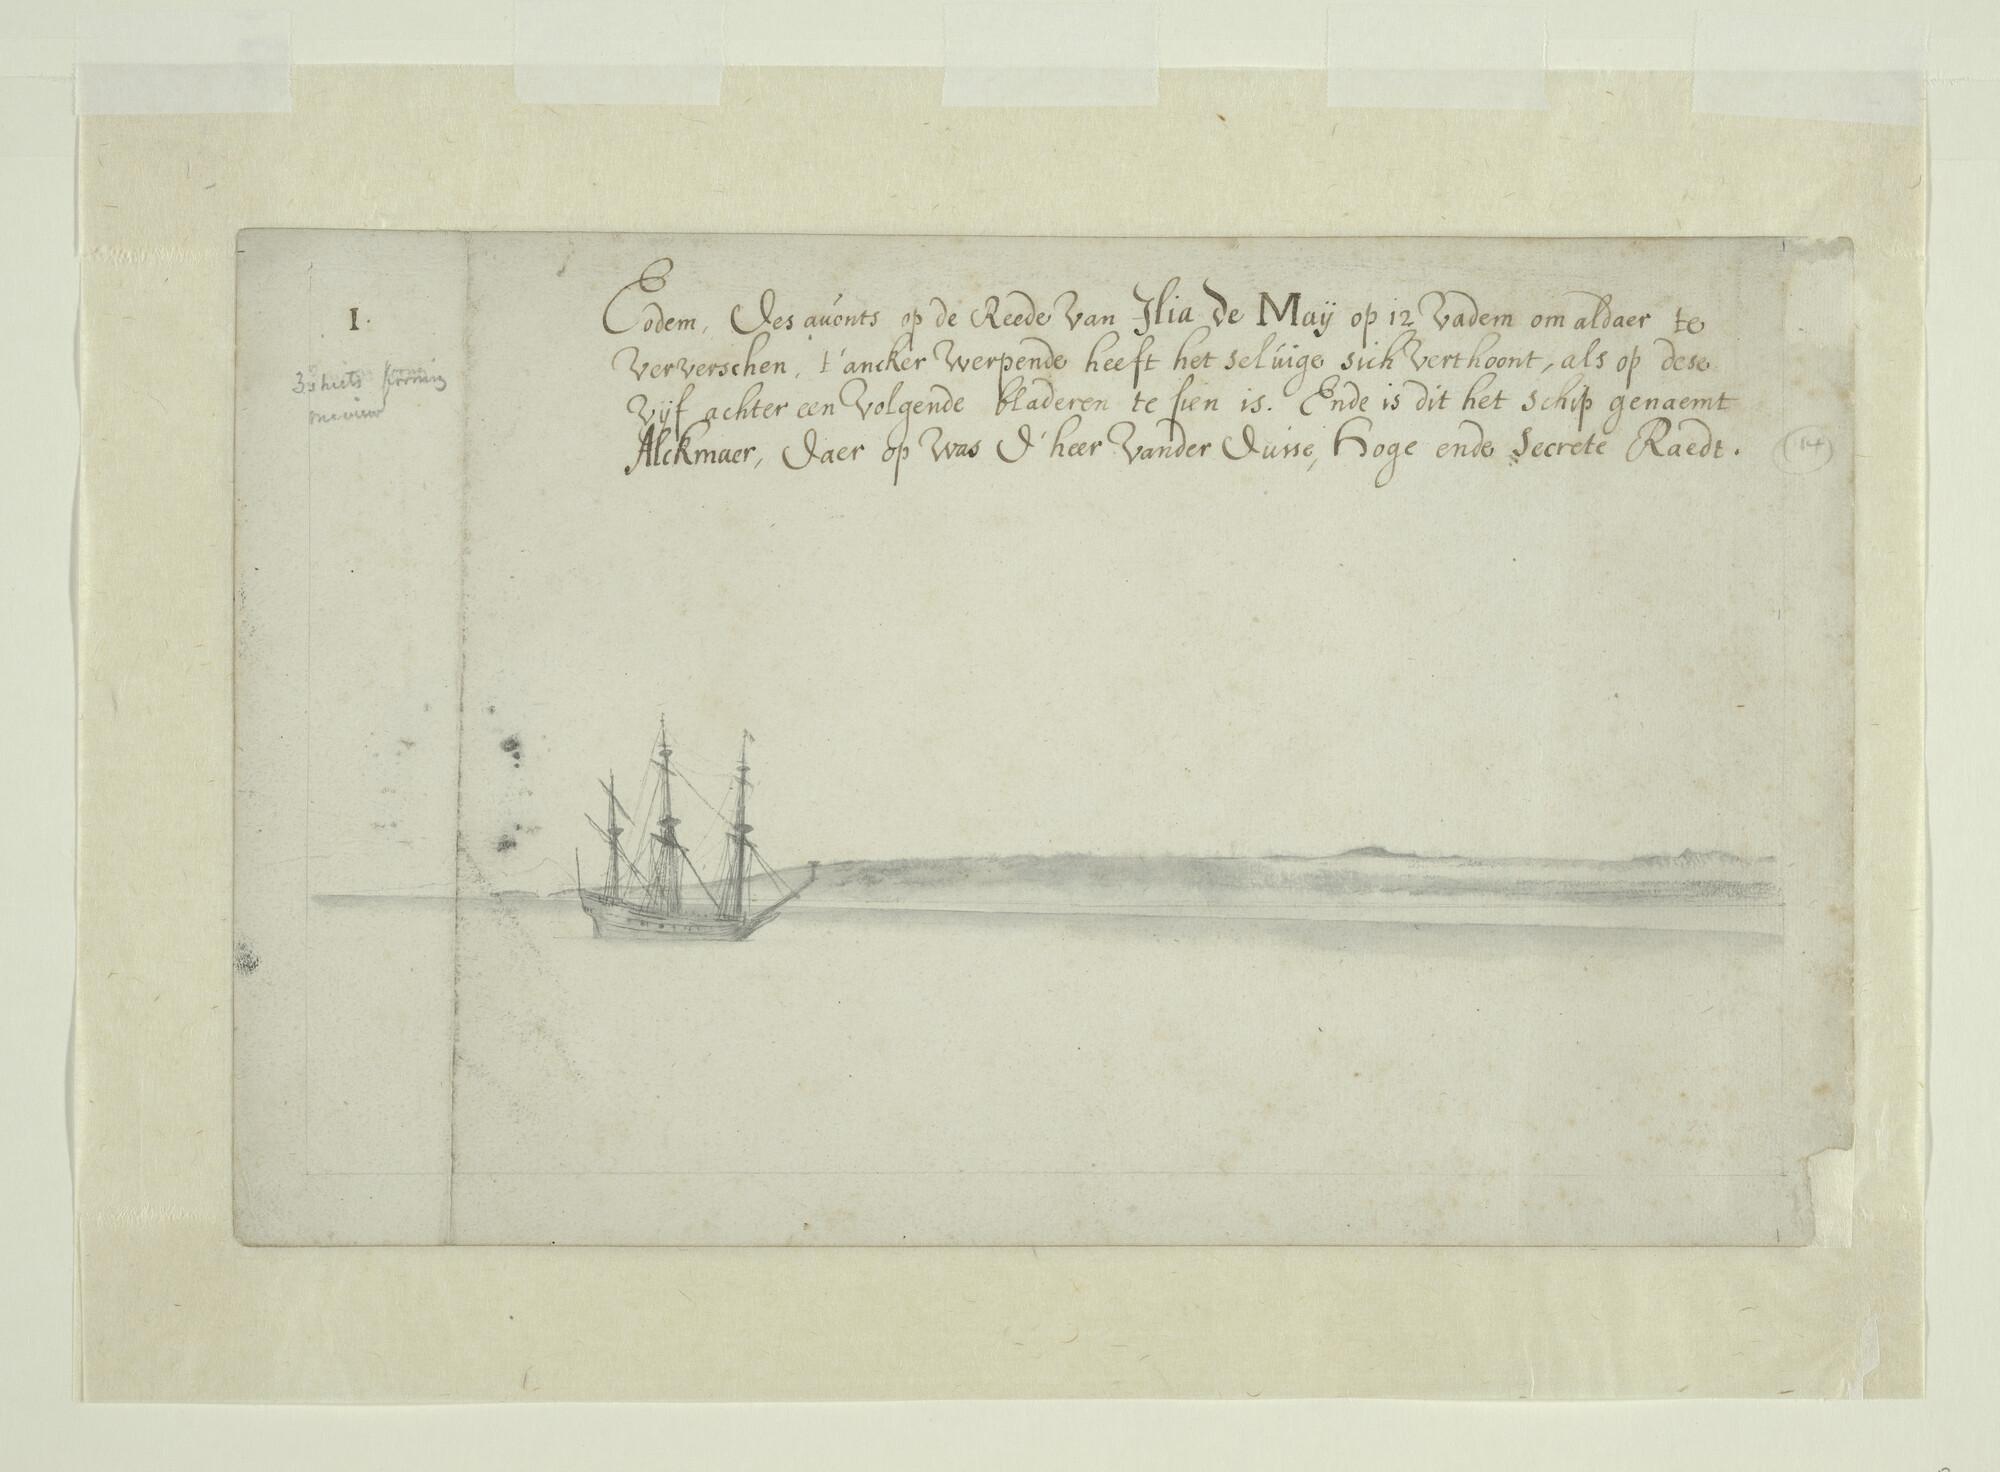 I.
Eodem, des avonts op de Reede van Ilia de Maÿ op 12 vadem om aldaer te
ververschen, t'ancker werpende heeft het selúige sich verthoont, als op dese
vijf achter een volgende bladeren te sien is. Ende is dit het schip genaemt
Alckmaer, daer op was d'heer vander Duisse, Hoge ende Secrete Raedt.
3 sheets forming
one view
(14)